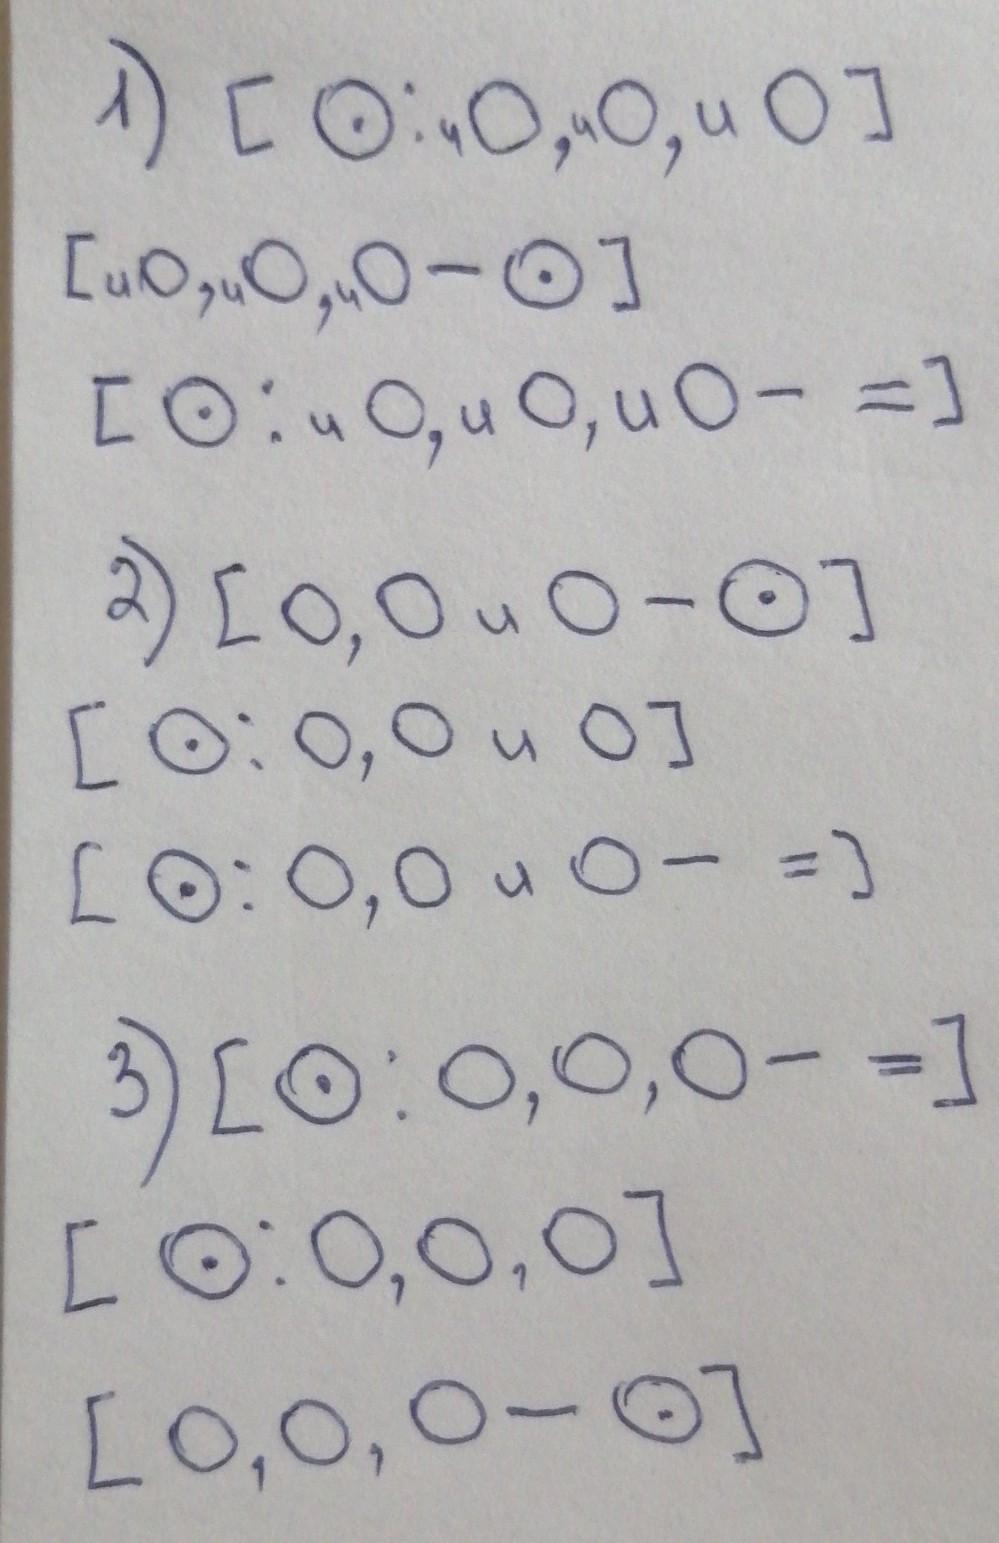 1) [ ⊙: и О, и О, и О ]
[ и О, и О, и О – ⊙ ]
[ ⊙: и О, и О, и О – = ]
2) [ О, О и О – ⊙ ]
[ ⊙: О, О и О ]
[ ⊙: О, О и О – = ]
3) [ ⊙: О, О, О – = ]
[ ⊙: О, О, О ]
[ О, О, О – ⊙ ]